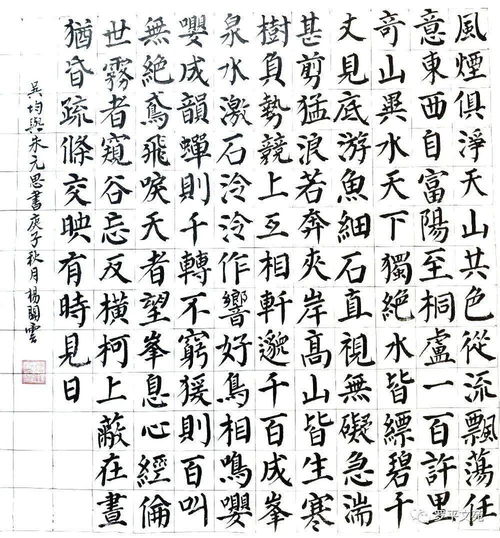 風煙俱淨天山共色從流飄蕩任
意東西自富陽至桐盧一百許里
奇山異水天下獨絕水皆縹碧千
丈見底游魚細石直視無礙急湍
甚剪猛浪若奔夾岸高山皆生寒
樹負勢競上互相軒邈千百成峯
泉水激石泠泠作響好鳥相鳴嚶
嚶成韻蟬則千轉不窮猨則百叫
無絕鳶飛唳天者望峯息心經倫
世霧者窺谷忘反橫柯上蔽在晝
猶昏疏條交映有時見日
吳均與朱元思書庚子秋月楊雲
罗平文苑